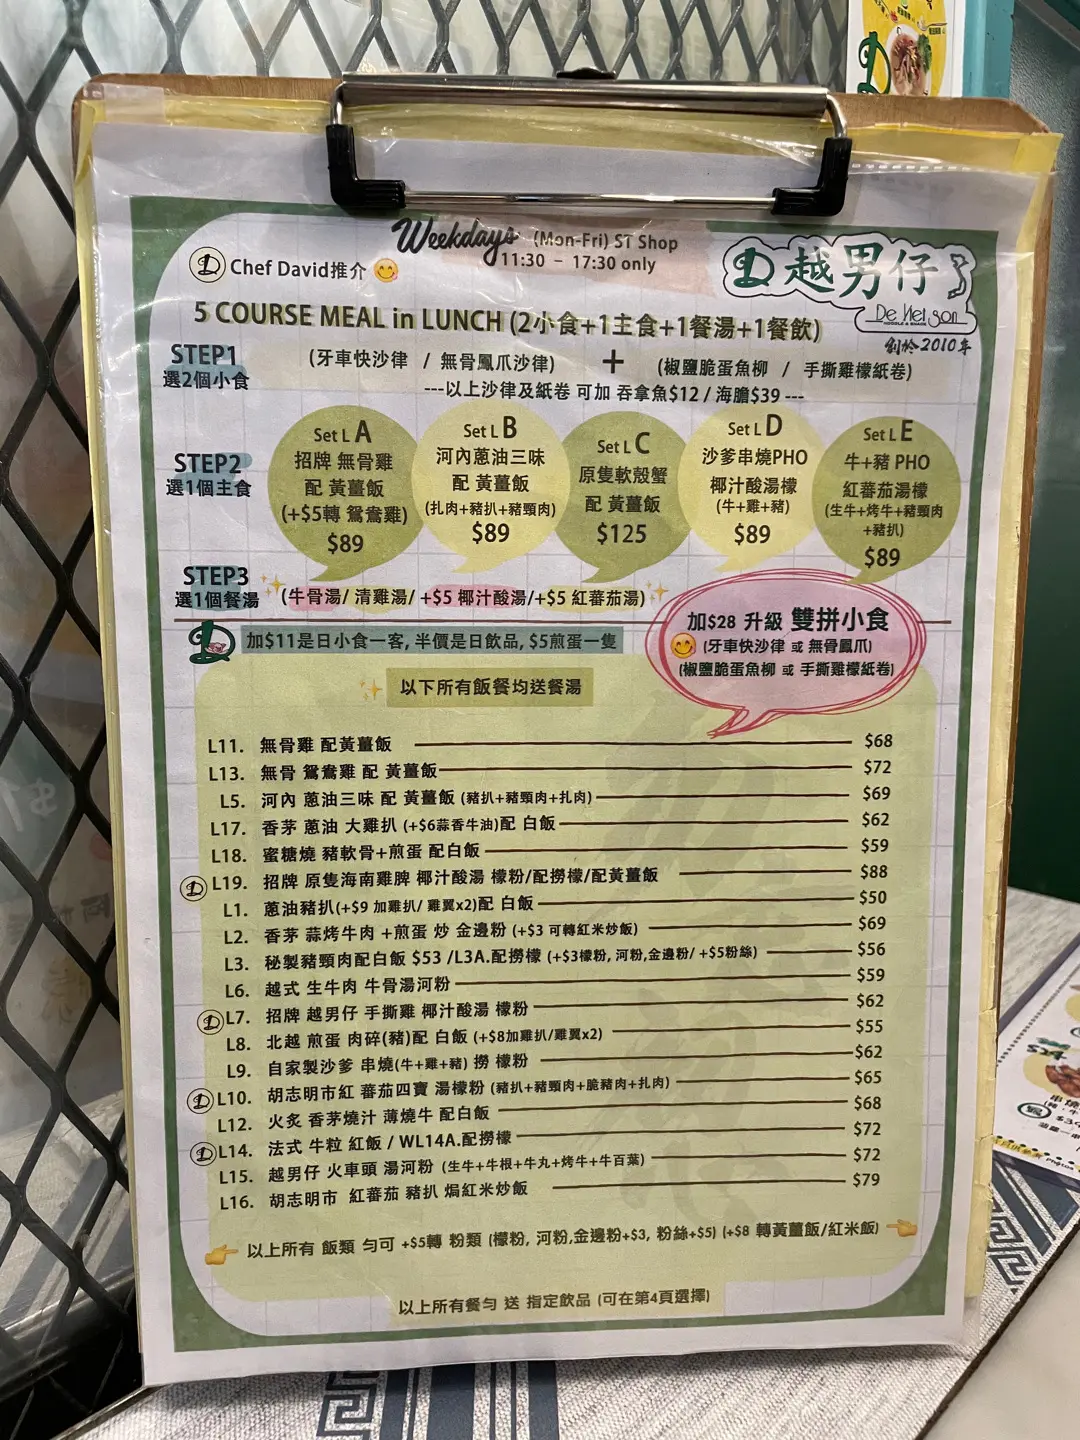 Weekdays (Mon-Fri) ST Shop
11:30 – 17:30 only
D Chef David推介
D 越男仔
De Nel son
NOODLE & SNACK
創於2010年
5 COURSE MEAL in LUNCH (2小食+1主食+1餐湯+1餐飲)
STEP1
選2個小食
(牙車快沙律 / 無骨鳳爪沙律) + (椒鹽脆蛋魚柳 / 手撕雞檬紙卷)
---以上沙律及紙卷 可加 吞拿魚$12 / 海膽$39 ---
STEP2
選1個主食
Set L A
招牌 無骨雞
配 黃薑飯
(+$5轉 鴛鴦雞)
$89
Set L B
河內蔥油三味
配 黃薑飯
(扎肉+豬扒+豬頸肉)
$89
Set L C
原隻軟殼蟹
配 黃薑飯
$125
Set L D
沙爹串燒PHO
椰汁酸湯檬
(牛+雞+豬)
$89
Set L E
牛+豬 PHO
紅蕃茄湯檬
(生牛+烤牛+豬頸肉
+豬扒)
$89
STEP3
選1個餐湯
(牛骨湯/ 清雞湯/ +$5 椰汁酸湯/+$5 紅蕃茄湯)
D 加$11是日小食一客, 半價是日飲品, $5煎蛋一隻
加$28 升級 雙拼小食
(牙車快沙律 或 無骨鳳爪)
(椒鹽脆蛋魚柳 或 手撕雞檬紙卷)
以下所有飯餐均送餐湯
L11. 無骨雞 配黃薑飯 $68
L13. 無骨 鴛鴦雞 配 黃薑飯 $72
L5. 河內 蔥油三味 配 黃薑飯 (豬扒+豬頸肉+扎肉) $69
L17. 香茅 蔥油 大雞扒 (+$6蒜香牛油)配 白飯 $62
L18. 蜜糖燒 豬軟骨+煎蛋 配白飯 $59
D L19. 招牌 原隻海南雞脾 椰汁酸湯 檬粉/配撈檬/配黃薑飯 $88
L1. 蔥油豬扒(+$9 加雞扒/ 雞翼x2)配 白飯 $50
L2. 香茅 蒜烤牛肉 +煎蛋 炒 金邊粉 (+$3 可轉紅米炒飯) $69
L3. 秘製豬頸肉配白飯 $53 /L3A.配撈檬 (+$3檬粉, 河粉,金邊粉/ +$5粉絲) $56
L6. 越式 生牛肉 牛骨湯河粉 $59
D L7. 招牌 越男仔 手撕雞 椰汁酸湯 檬粉 $62
L8. 北越 煎蛋 肉碎(豬)配 白飯 (+$8加雞扒/雞翼x2) $55
L9. 自家製沙爹 串燒(牛+雞+豬) 撈 檬粉 $62
D L10. 胡志明市紅 蕃茄四寶 湯檬粉 (豬扒+豬頸肉+脆豬肉+扎肉) $65
L12. 火炙 香茅燒汁 薄燒牛 配白飯 $68
D L14. 法式 牛粒 紅飯 / WL14A.配撈檬 $72
L15. 越男仔 火車頭 湯河粉 (生牛+牛根+牛丸+烤牛+牛百葉) $72
L16. 胡志明市 紅蕃茄 豬扒 焗紅米炒飯 $79
以上所有 飯類 勻可 +$5轉 粉類 (檬粉, 河粉,金邊粉+$3, 粉絲+$5) (+$8 轉黃薑飯/紅米飯)
以上所有餐勻 送 指定飲品 (可在第4頁選擇)